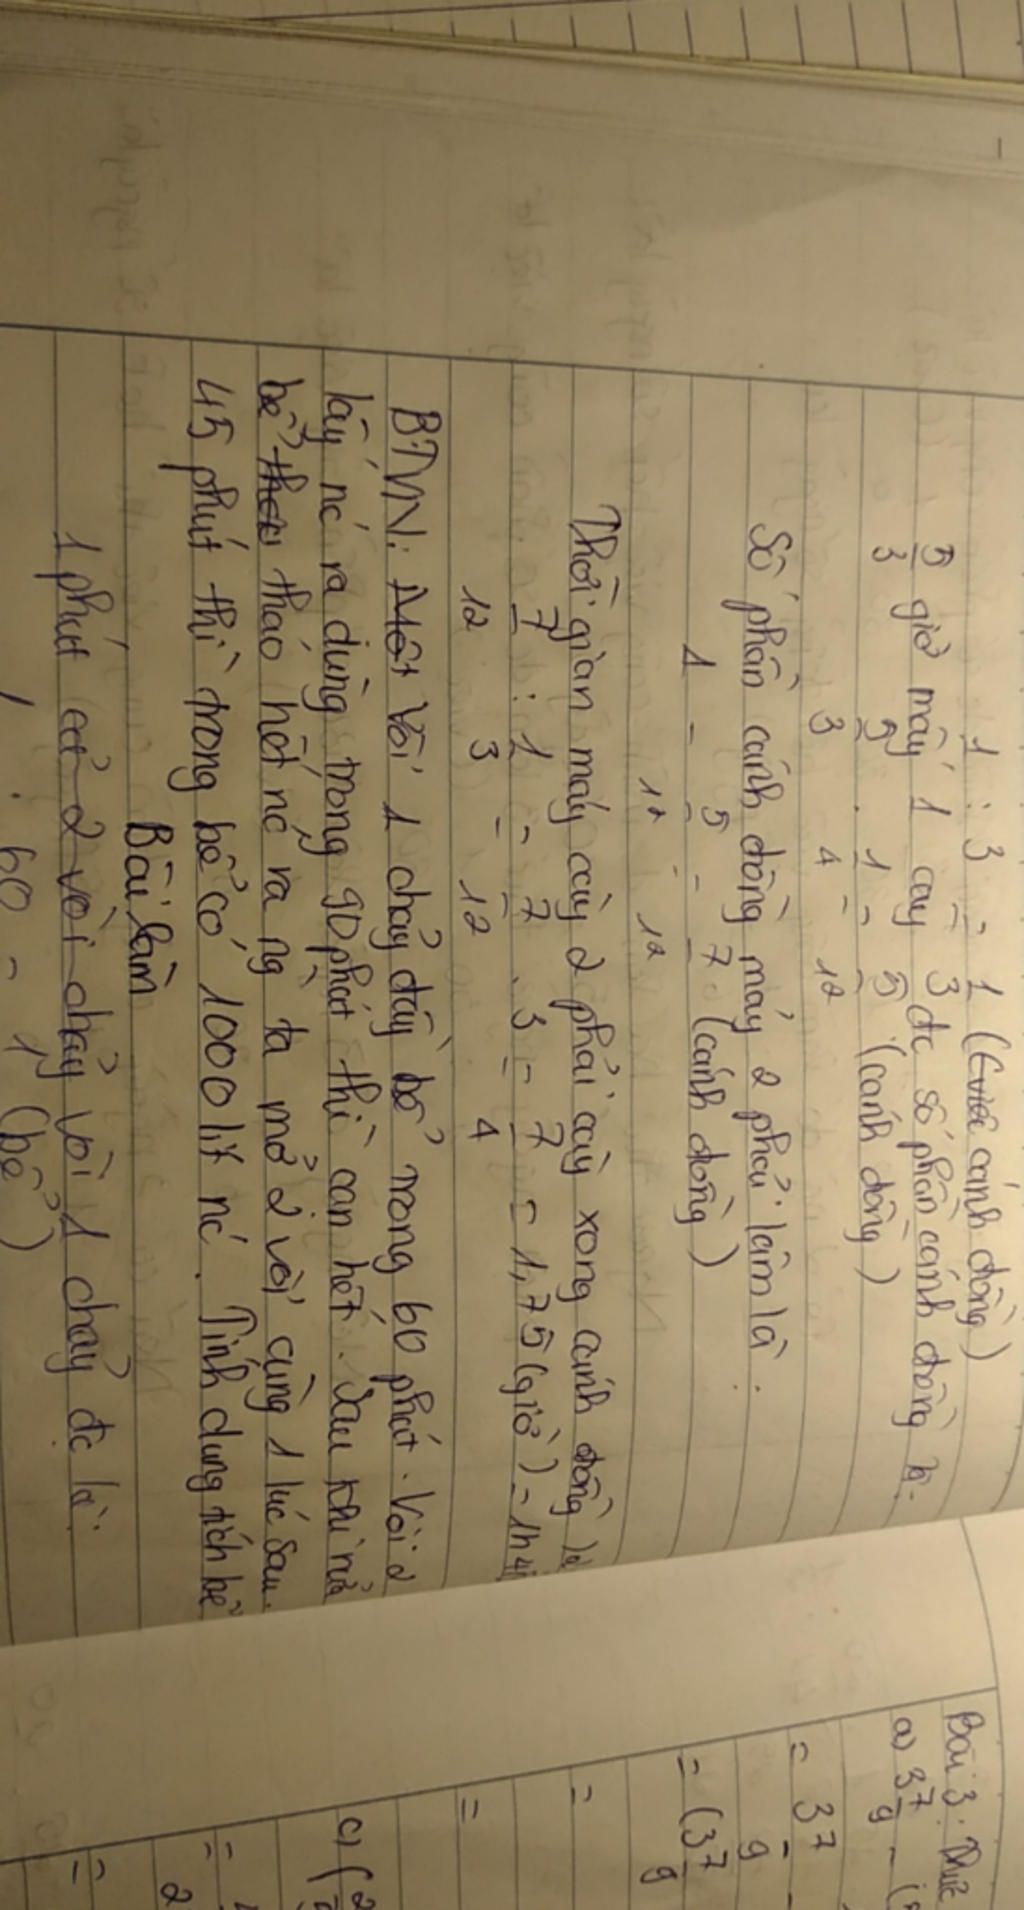 1 : 3 = 1/3 (cánh đồng)
5/3 giờ máy 1 cày đc số phần cánh đồng là:
5/3 . 1/4 = 5/12 (cánh đồng)
Số phần cánh đồng máy 2 phải làm là:
1 - 5/12 = 7/12 (cánh đồng)
Thời gian máy cày 2 phải cày xong cánh đồng là
7/12 : 1/3 = 7/12 . 3 = 7/4 = 1,75 (giờ) = 1h4
BTVN: Một vòi 1 chảy đầy bể trong 60 phút. Vòi 2
lấy nc ra dùng trong 90 phút thì cạn hết. Sau khi rửa
bể tháo hết nc ra ng ta mở 2 vòi cùng 1 lúc sau
45 phút thì trong bể có 1000 lít nc. Tính dung tích bể
Bài làm
1 phút cả 2 vòi chảy vòi 1 chảy đc là:
1 : 60 = 1 (bể)
Bài 3: Thực
a) 37/9 - (
= 37/9 -
= (37/9
=
=
c) (2
=
=